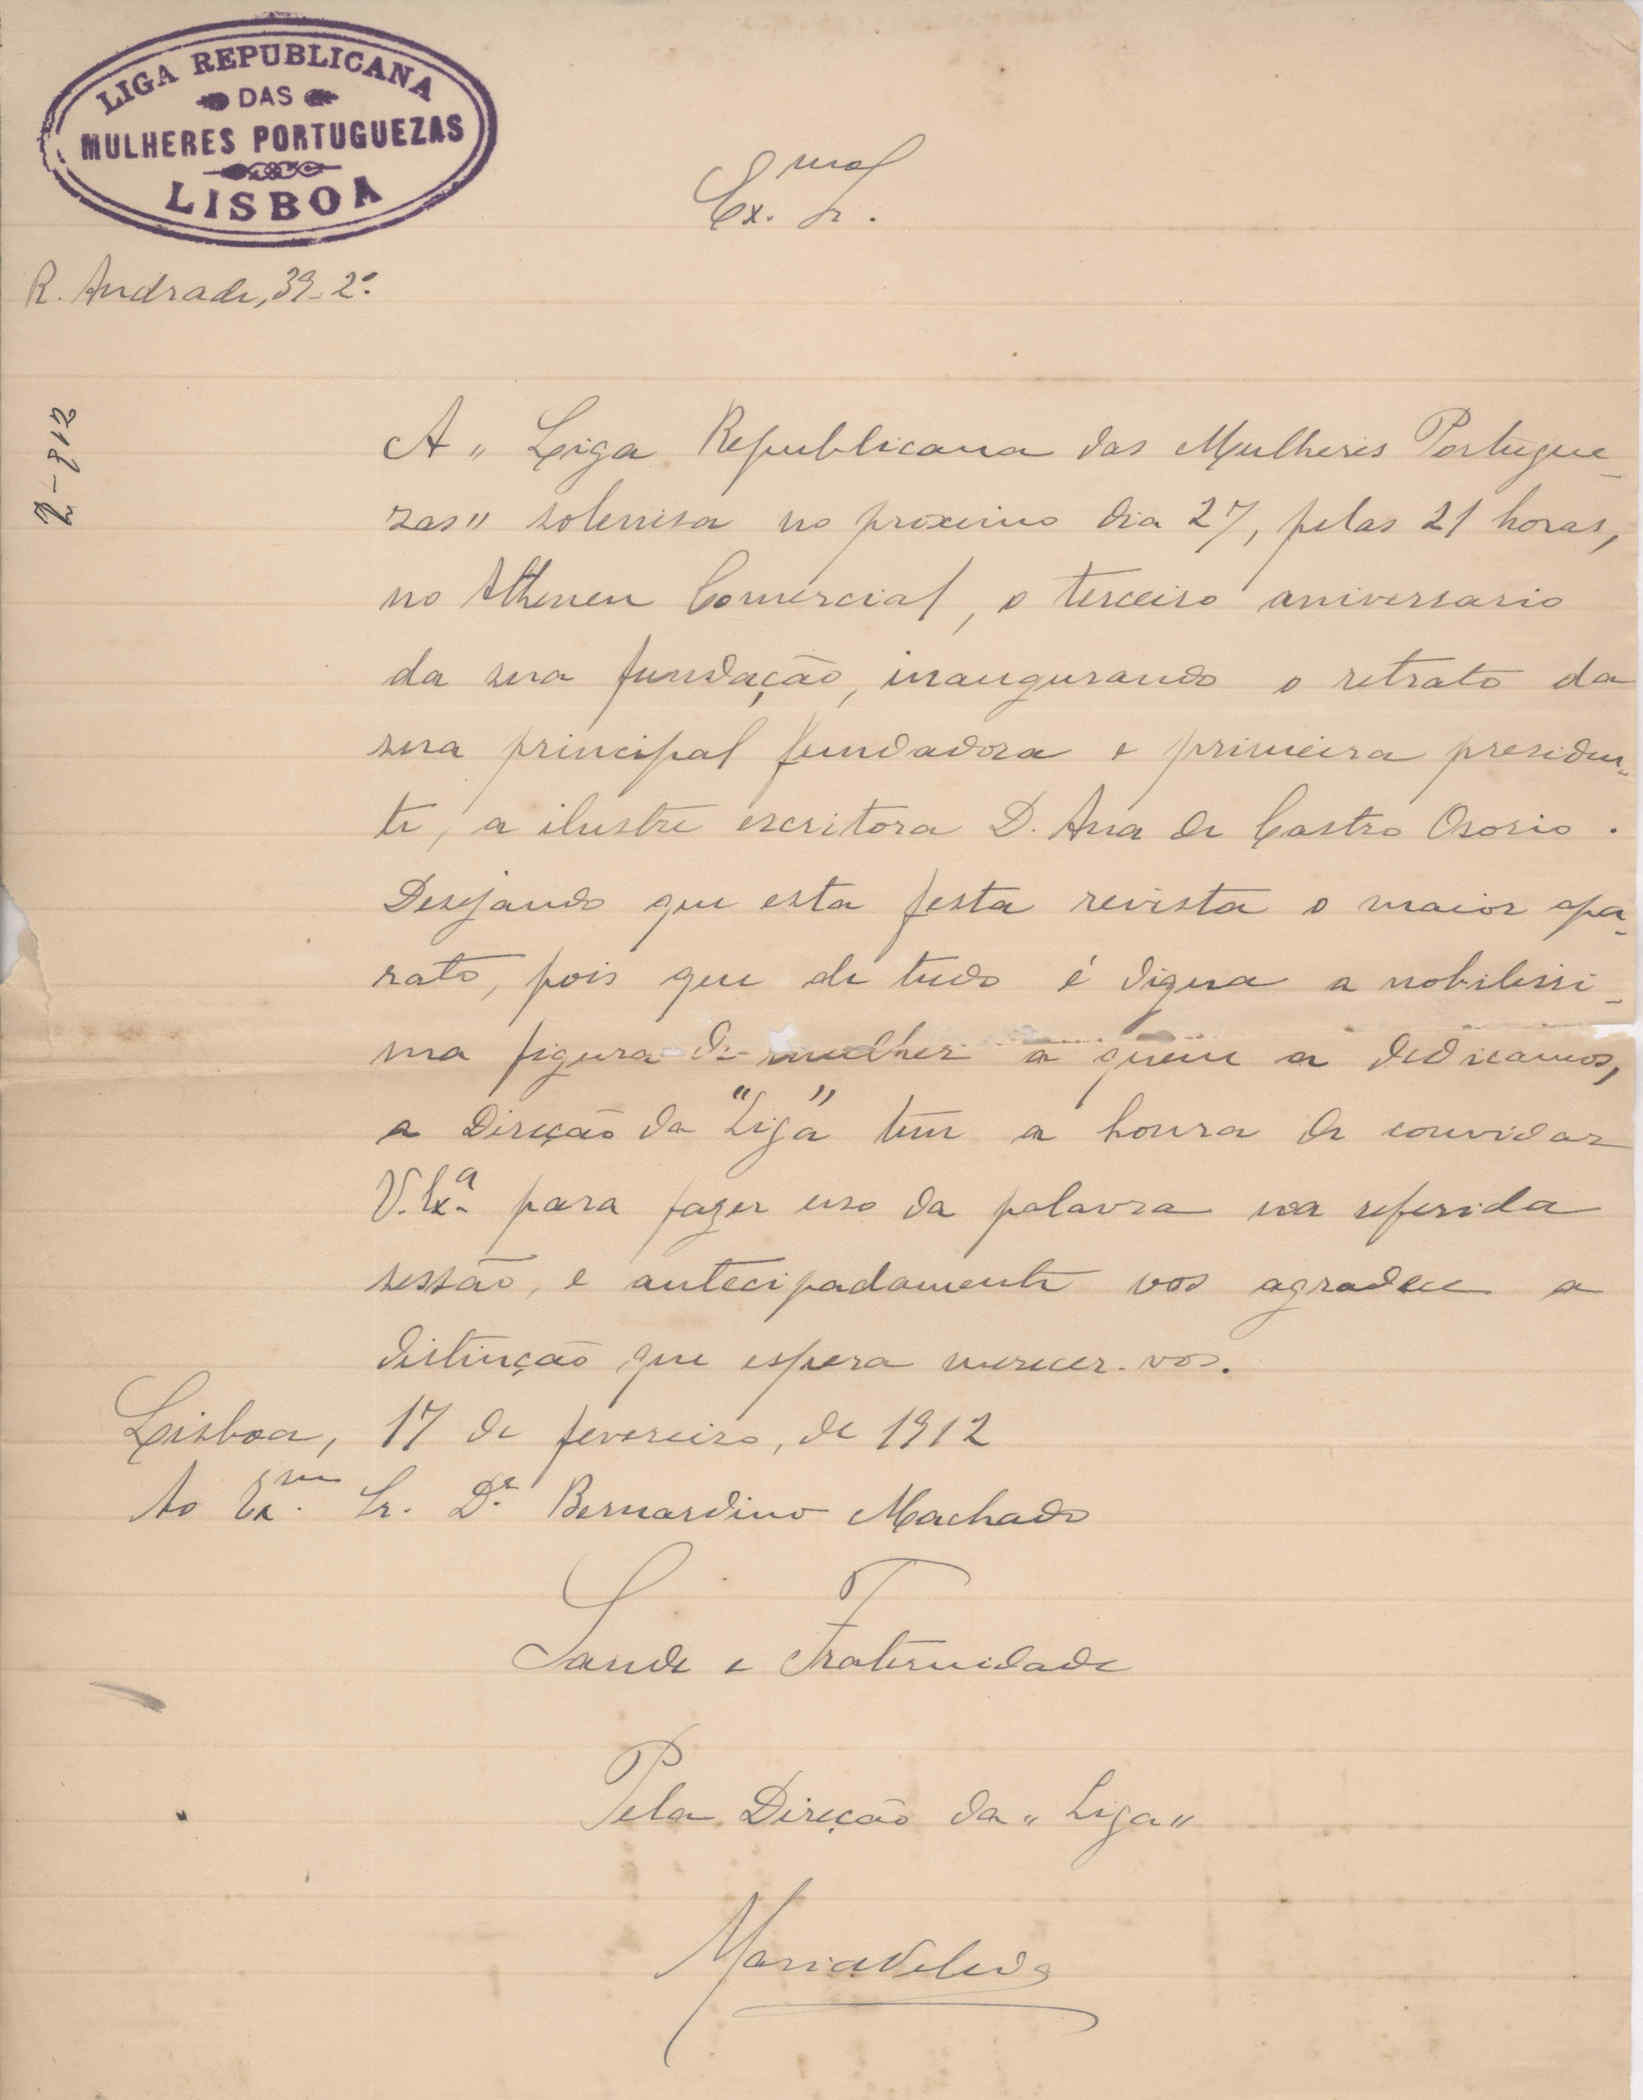 LIGA REPUBLICANA
DAS
MULHERES PORTUGUEZAS
LISBOA
Ex.mo Sr.
R. Andrade, 39-2º
A "Liga Republicana das Mulheres Portugue-
zas" solenisa no proximo dia 27, pelas 21 horas,
no Atheneu Comercial, o terceiro aniversario
da sua fundação, inaugurando o retrato da
sua principal fundadora e primeira presiden-
te, a ilustre escritora D. Ana de Castro Osorio.
Desejando que esta festa revista o maior apa-
rato, pois que de tudo é digna a nobilissi-
ma figura de mulher a quem a dedicamos,
a Direção da "Liga" tem a honra de convidar
V. Ex.ª para fazer uso da palavra na referida
sessão, e antecipadamente vos agradece a
distinção que espera merecer-vos.
Lisboa, 17 de fevereiro, de 1912
Ao Ex.mo Sr. Dr. Bernardino Machado
Saude e Fraternidade
Pela Direção da "Liga"
Maria Veleda